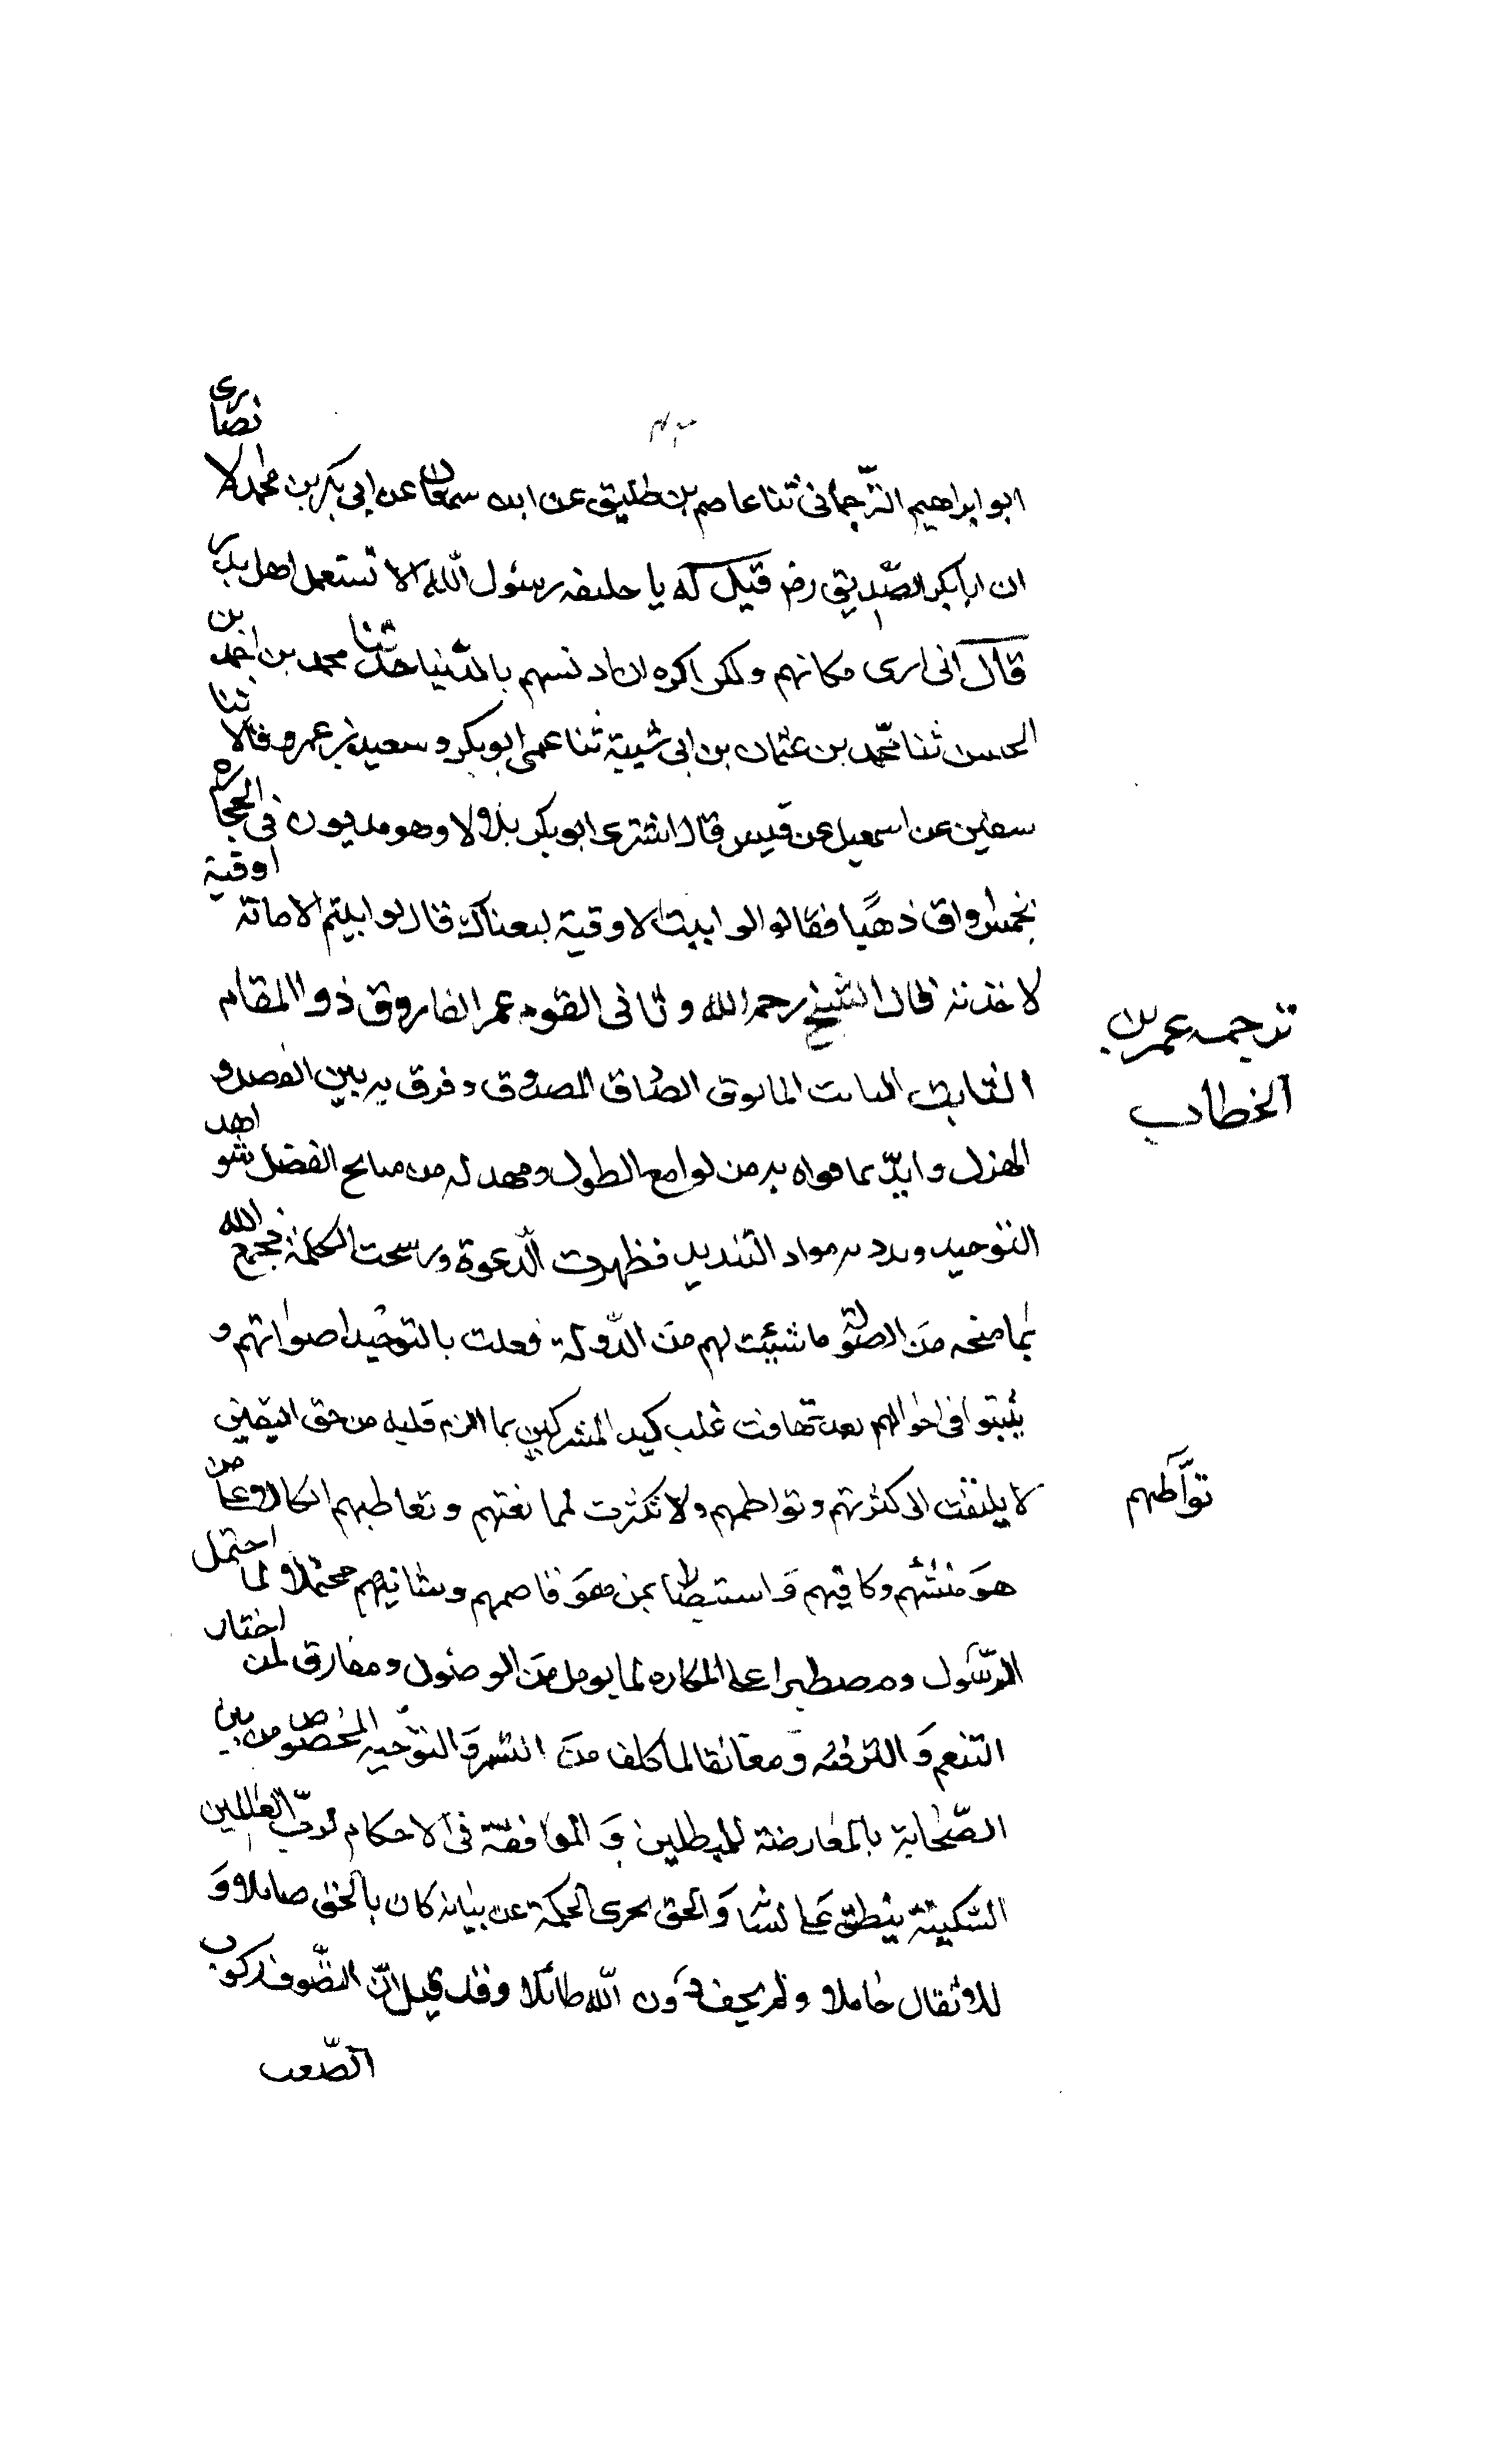 ابو ابراهيم الترّجماني ثنا عاصم بن طليق عن ابيه سمعان عن ابي بكر بن محمد الا نصارى
ان ابابكر الصّديق رض قيل له يا خليفه رسول الله الا تستعمل اهل بدر
قال انى ارى مكانهم ولكن اكره ان ادنسهم بالدّنيا حدثنا محمد بن احمد بن
الحسن ثنا محمّد بن عثمان بن ابى شيبة ثنا عمى ابوبكر وسعيد بن عمرو قالا ثنا
سفين عن اسمعيل عن قيس قال اشترى ابوبكر بلالا وهو مدفون في الحجاره
بخمس اواق ذهبًا فقالوا لو ابيت الا اوقية لبعناك قال لو ابيتم الا مائة اوقية
لاخذته قال الشيخ رحمه الله وثانى القوم عمر الفاروق ذو المقام
الثابت المانوق الصادق المصدوق وفرق به بين الفصل و
الهزل وايدّ بما قواه به من لوامع الطول ومهد له من منائح الفضل شواهد
التوحيد وبدد به مواد التنديد فظهرت الّدعوة ورسخت الكلمة فجمع الله
بما منحه من الصولة ما شيئت لهم من الدّولة فعلت بالتوحيد اصواتهم و
يثبتوا في احوالهم بعد تهافت غلب كيد المشركين بما الزم قلبه من حق اليقين
لا يلتفت الى كثرتهم وتواطيهم ولا تكثرت لممانعتهم وتعاطيهم اتكالا على من
هو منشئهم وكافيهم واستنصارا بمن هو قاصمهم وشانيهم محتملا لما احتمل
الرّسول ومصطبرا على المكاره لما يومل من الوصول ومفارق لمن اختار
التنعم والترفه ومعانقا لما كلف من التشمر والتوجيه المخصوص من بين
الصّحابة بالمعارضة للمبطلين و الموافقة في الاحكام لربّ العالمين
السّكينة ينطق على لسانه والحق يجرى الحكمة عن بيانه كان بالحق صائلا و
للاثقال حاملا ولم يخف دون الله طائلا وقد قيل انّ التصّوف ركوب
الصّعب
ترجمه عمر بن
الخطاب
تواطيهم